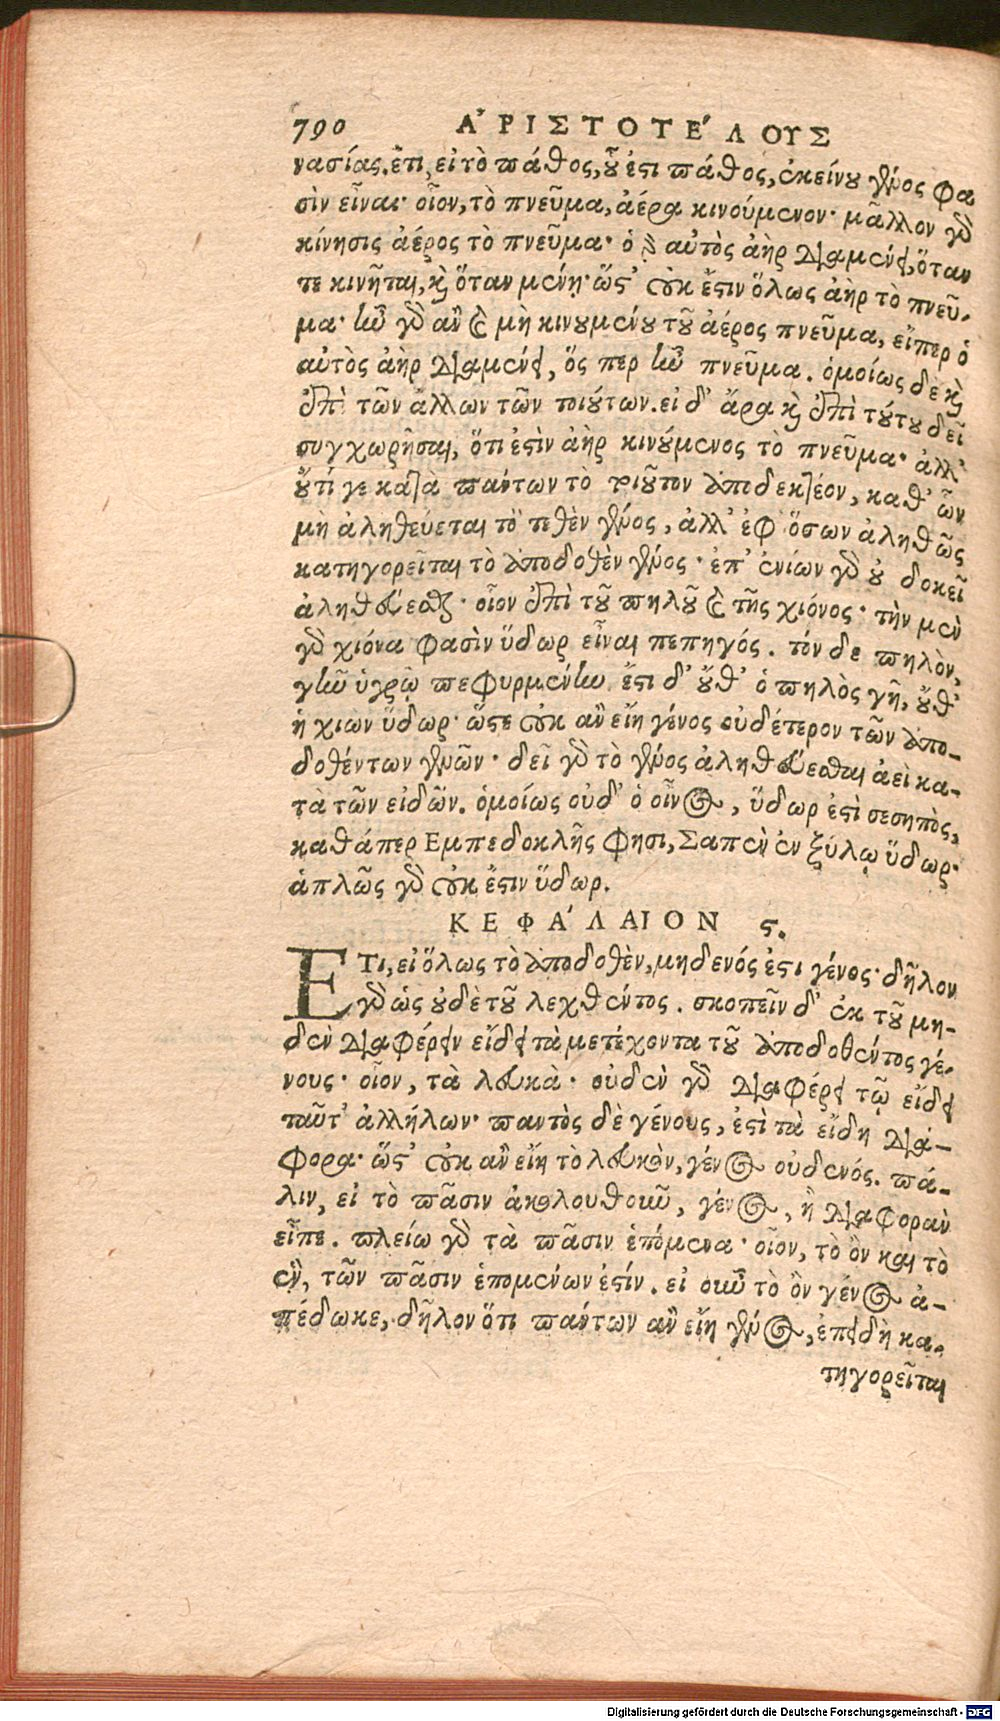 790 Ἀ ΡΙΣΤΟΤΕ΄ΛΟΥΣ
νασίας. ἔτι, εἰ τὸ πάθος, οὗ ἐστι πάθος, ἐκείνου γένος φα
σὶν εἶναι· οἷον, τὸ πνεῦμα, ἀέρα κινούμενον· μᾶλλον γὸ
κίνησις ἀέρος τὸ πνεῦμα· ὁ δὲ αὐτὸς ἀὴρ διαμένει, ὅταν
τε κινῆται, καὶ ὅταν μένῃ· ὥστ' οὐκ ἔστιν ὅλως ἀὴρ τὸ πνεῦ-
μα· ἦν γὸ ἂν καὶ μὴ κινουμένου τοῦ ἀέρος πνεῦμα, εἴπερ ὁ
αὐτὸς ἀὴρ διαμένει, ὅς περ ἦν πνεῦμα. ὁμοίως δὲ καὶ
ἐπὶ τῶν ἄλλων τῶν τοιούτων. εἰ δ' ἄρα καὶ ἐπὶ τούτου δεῖ
συγχωρῆσαι, ὅτι ἐστὶν ἀὴρ κινούμενος τὸ πνεῦμα· ἀλλ'
οὔτι γε κατὰ πάντων τὸ τοιοῦτον ἀποδεκτέον, καθ' ὧν
μὴ ἀληθεύεται τὸ τεθὲν γένος, ἀλλ' ἐφ' ὅσων ἀληθῶς
κατηγορεῖται τὸ ἀποδοθὲν γένος· ἐπ' ἐνίων γὸ οὐ δοκεῖ
ἀληθεύεσθαι· οἷον ἐπὶ τοῦ πηλοῦ καὶ τῆς χιόνος· τὴν μὲν
γὸ χιόνα φασὶν ὕδωρ εἶναι πεπηγός. τόν δε πηλὸν,
γῆν ὑγρῷ πεφυρμένην. ἔστι δ' οὔθ' ὁ πηλὸς γῆ, οὔθ'
ἡ χιὼν ὕδωρ· ὥστε οὐκ ἂν εἴη γένος οὐδέτερον τῶν ἀπο-
δοθέντων γενῶν· δεῖ γὸ τὸ γένος ἀληθεύεσθαι ἀεὶ κα-
τὰ τῶν εἰδῶν. ὁμοίως οὐδ' ὁ οἶνος, ὕδωρ ἐστὶ σεσηπὸς,
καθάπερ Εμπεδοκλῆς φησι, Σαπὲν ἐν ξύλῳ ὕδωρ·
ἁπλῶς γὸ οὐκ ἔστιν ὕδωρ.
ΚΕΦΑ΄ΛΑΙΟΝ ϛ.
ΕΤι, εἰ ὅλως τὸ ἀποδοθὲν, μηδενός ἐστι γένος· δῆλον
γὸ ὡς οὐδὲ τοῦ λεχθέντος. σκοπεῖν δ' ἐκ τοῦ μη-
δὲν διαφέρειν εἴδει τὰ μετέχοντα τοῦ ἀποδοθέντος γέ-
νους· οἷον, τὰ λευκὰ· οὐδὲν γὸ διαφέρει τῷ εἴδει
ταῦτ' ἀλλήλων· παντὸς δὲ γένους, ἐστὶ τὰ εἴδη διά-
φορα· ὥστ' οὐκ ἂν εἴη τὸ λευκὸν, γένος οὐδενός. πά-
λιν, εἰ τὸ πᾶσιν ἀκολουθοῦν, γένος, ἢ διαφορὰν
εἶπε. πλείω γὸ τὰ πᾶσιν ἑπόμενα· οἷον, τὸ ὂν καὶ τὸ
ἓν, τῶν πᾶσιν ἑπομένων ἐστίν. εἰ οὖν τὸ ὂν γένος ἀ-
πέδωκε, δῆλον ὅτι πάντων ἂν εἴη γένος, ἐπειδὴ κα-
τηγορεῖται
Digitalisierung gefördert durch die Deutsche Forschungsgemeinschaft - DFG